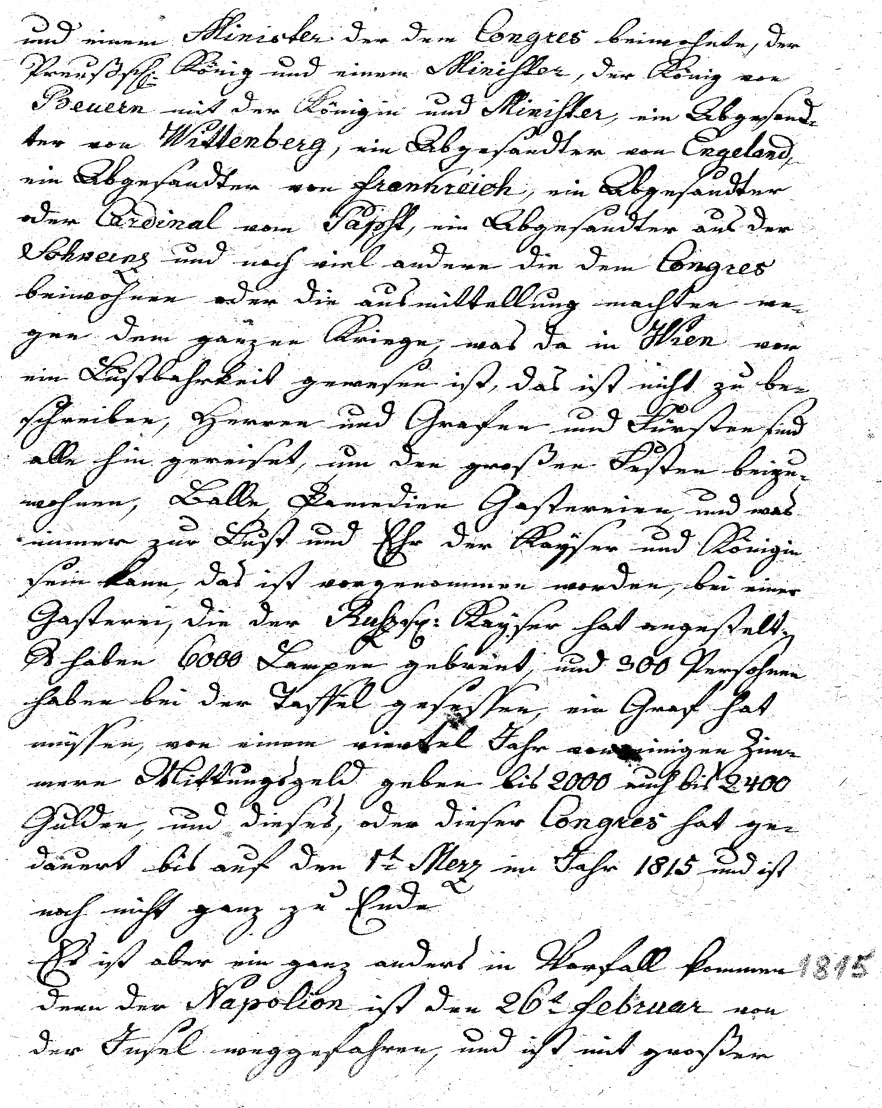 und einem Minister der dem Congres beiwohnte, der
Preußsch: König und einem Minister, der König von
Beuern mit der Königin und Minister, ein Abgesand-
ter von Wittenberg, ein Abgesandter von Engeland,
ein Abgesandter von frankreich, ein Abgesandter
oder Cardinal vom Papst, ein Abgesandter aus der
Schweinz und noch viel andere die dem Congres
beiwohnen oder die ausmittellung machten we-
gen dem ganzen Kriege, was da in Wien vor
ein Lustbahrkeit gewesen ist, das ist nicht zu be-
schreiben, Herren und Grafen und Fürsten sind
alle hin gereiset, um den großen Festen beizu-
wohnen, Balle, Comedien Gastereien und was
immer zur Lust und Ehr der Kayser und Königin
sein kann, das ist vorgenommen worden, bei einer
Gasterei, die der Rußsch: Kayser hat angestelt,
Es haben 6000 Lampen gebrent, und 300 Persohnen
haben bei der Taffel gesessen, ein Graf hat
müssen, von einem viertel Jahr von einigen Zim-
mern Mittungsgeld geben bis 2000 auch bis 2400
Gulden, und dieses, oder dieser Congres hat ge-
dauert bis auf den 1t Merz im Jahr 1815 und ist
noch nicht ganz zu Ende
Es ist aber ein ganz anders in Vorfall kommen 1815
denn der Napolion ist den 26t februar von
der Insel weggefahren, und ist mit großer